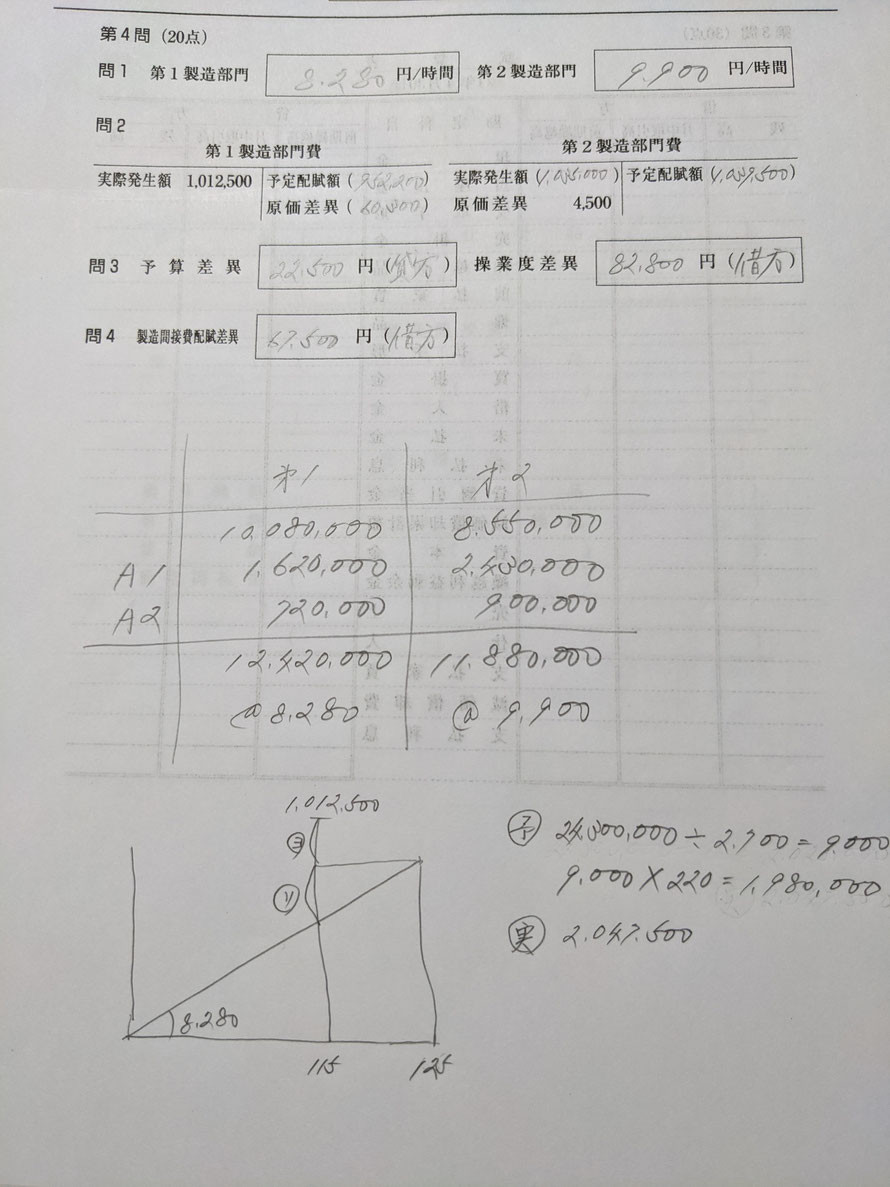 第4問（20点）
問1 第1製造部門 8.280 円/時間 第2製造部門 9.900 円/時間
問2
第1製造部門費 第2製造部門費
実際発生額 1,012,500 予定配賦額（952,200） 実際発生額（1,035,000） 予定配賦額（1,039,500）
原価差異（60,300） 原価差異 4,500
問3 予算差異 22.500 円（貸方） 操業度差異 82.800 円（借方）
問4 製造間接費配賦差異 67.500 円（借方）
オ1 オ2
10.080,000 8.550,000
A1 1.620,000 2.430,000
A2 720,000 900,000
12.420,000 11.880,000
@ 8.280 @ 9.900
1.012.500
ヨ
ソ
8.280
115 125
予 24.300,000÷2.700=9.000
9.000×220=1.980,000
実 2.047.500